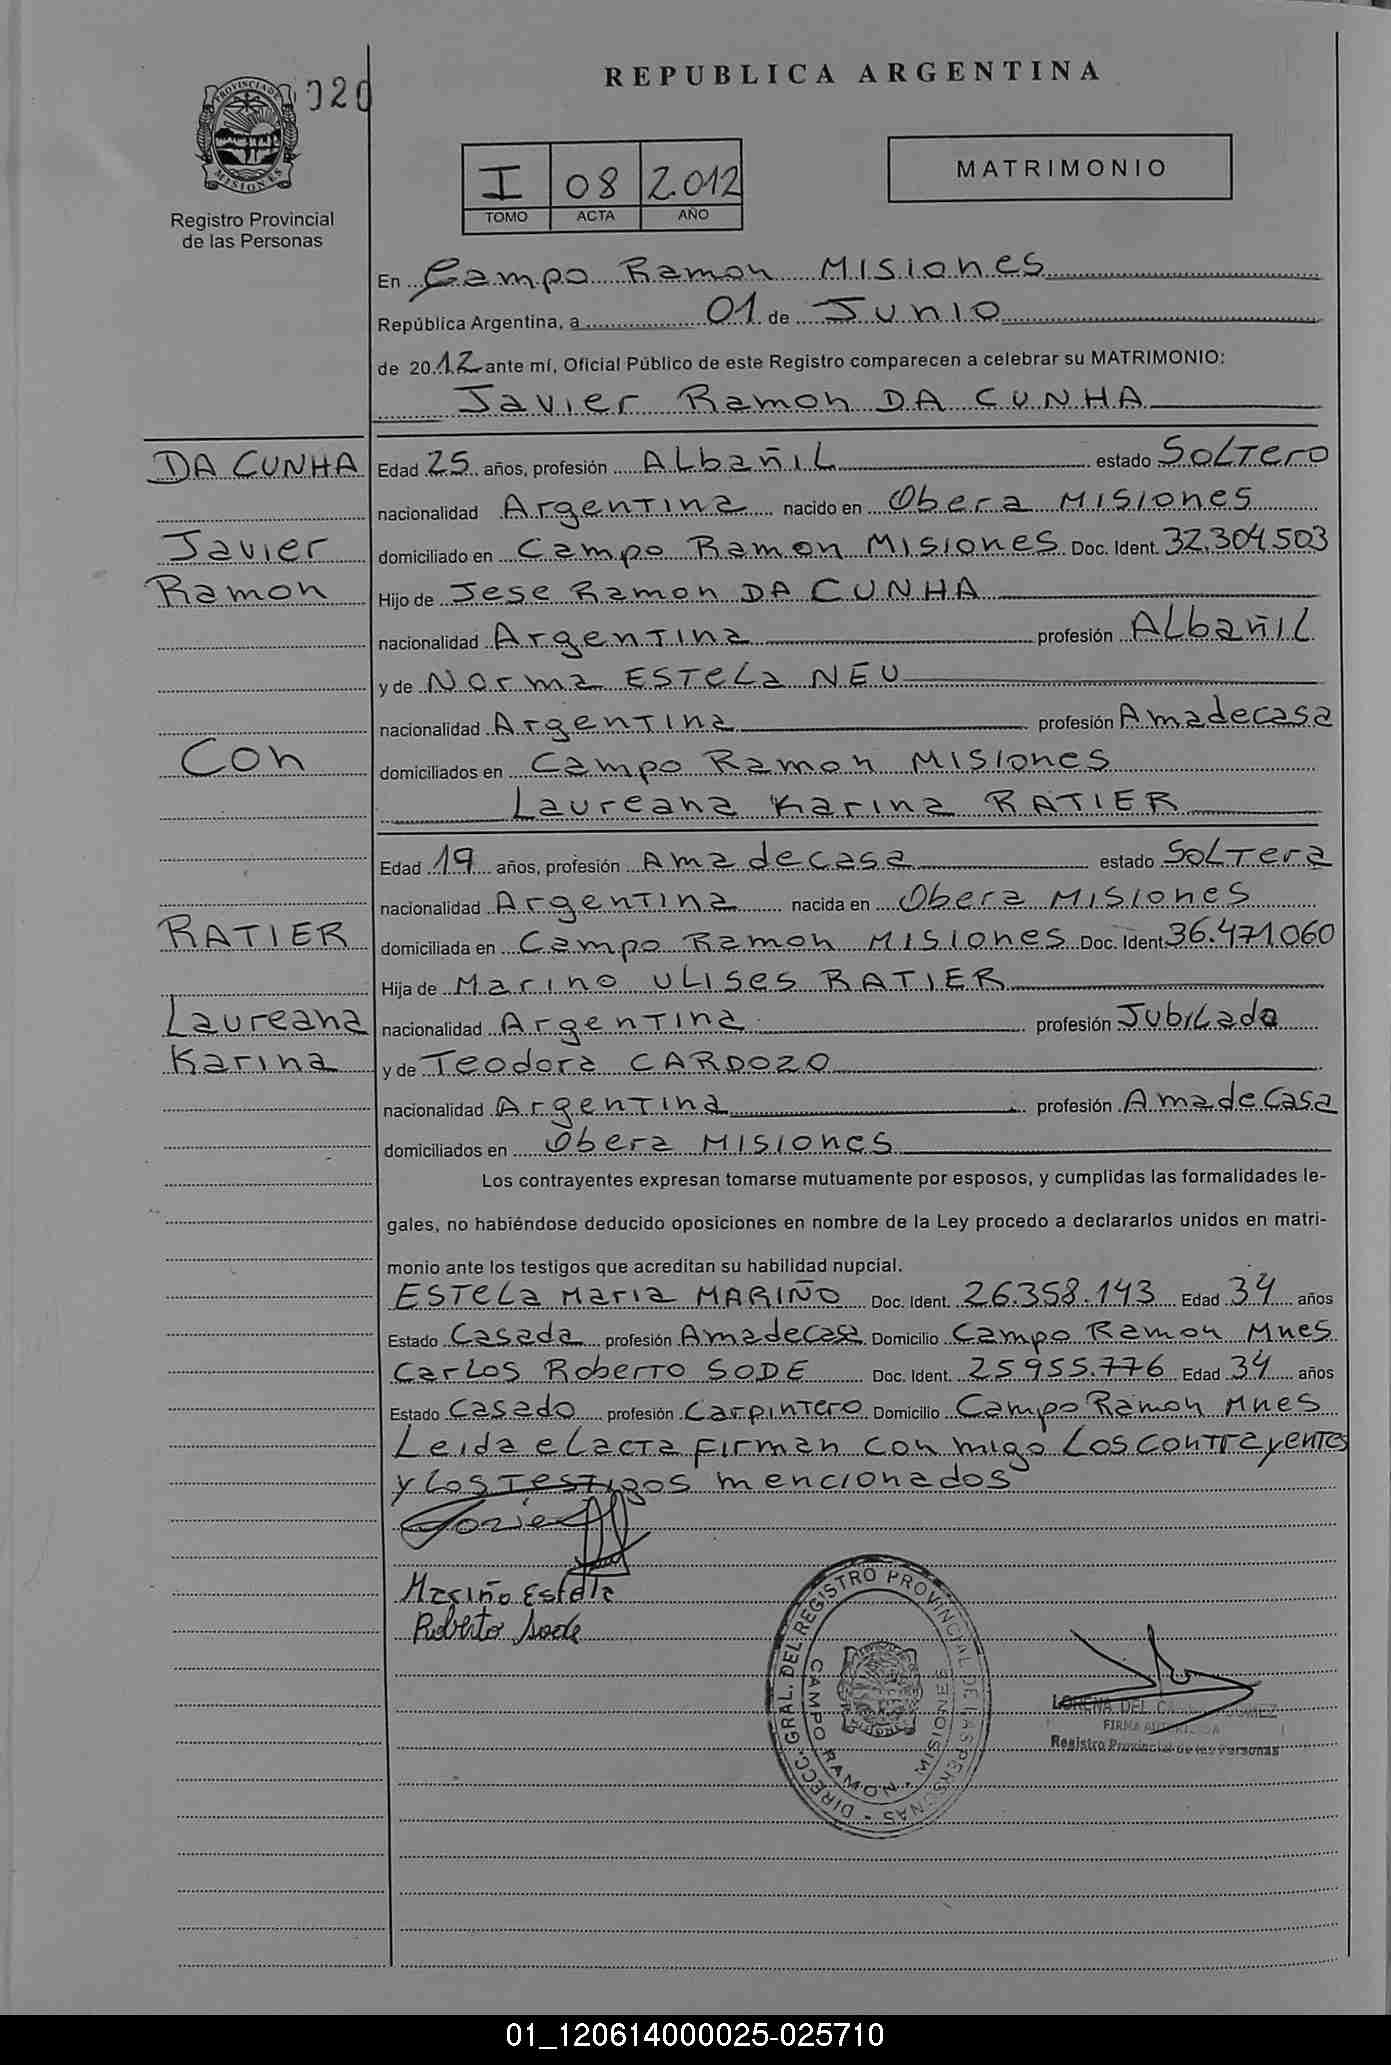 REPUBLICA ARGENTINA
020
PROVINCIA DE MISIONES
Registro Provincial
de las Personas
I 08 2.012
TOMO ACTA AÑO
MATRIMONIO
En Campo Ramon Misiones
República Argentina, a 01 de Junio
de 2012 ante mí, Oficial Público de este Registro comparecen a celebrar su MATRIMONIO:
Javier Ramon DA CUNHA
DA CUNHA
Edad 25 años, profesión Albañil estado Soltero
nacionalidad Argentina nacido en Obera Misiones
Javier
domiciliado en Campo Ramon Misiones Doc. Ident. 32.304.503
Ramon
Hijo de Jese Ramon DA CUNHA
nacionalidad Argentina profesión Albañil
y de Norma Estela NEU
nacionalidad Argentina profesión Amadecasa
Con
domiciliados en Campo Ramon Misiones
Laureana Karina RATIER
Edad 19 años, profesión Ama de casa estado Soltera
nacionalidad Argentina nacida en Obera Misiones
RATIER
domiciliada en Campo Ramon Misiones Doc. Ident. 36.471.060
Hija de Marino Ulises RATIER
Laureana
nacionalidad Argentina profesión Jubilado
Karina
y de Teodora CARDOZO
nacionalidad Argentina profesión Ama de Casa
domiciliados en Obera Misiones
Los contrayentes expresan tomarse mutuamente por esposos, y cumplidas las formalidades le-
gales, no habiéndose deducido oposiciones en nombre de la Ley procedo a declararlos unidos en matri-
monio ante los testigos que acreditan su habilidad nupcial.
Estela Maria MARIÑO Doc. Ident. 26.358.143 Edad 34 años
Estado Casada profesión Amadecasa Domicilio Campo Ramon Mnes
Carlos Roberto SODE Doc. Ident. 25955.776 Edad 34 años
Estado Casado profesión Carpintero Domicilio Campo Ramon Mnes
Leida el acta firman con migo los contrayentes
y los testigos mencionados
Mariño Estela
Roberto Sode
DIRECC. GRAL. DEL REGISTRO PROVINCIAL DE LAS PERSONAS
CAMPO RAMON - MISIONES
LORENA DEL GOMEZ
FIRMA AUTORIZADA
Registro Provincial de las Personas
01_120614000025-025710